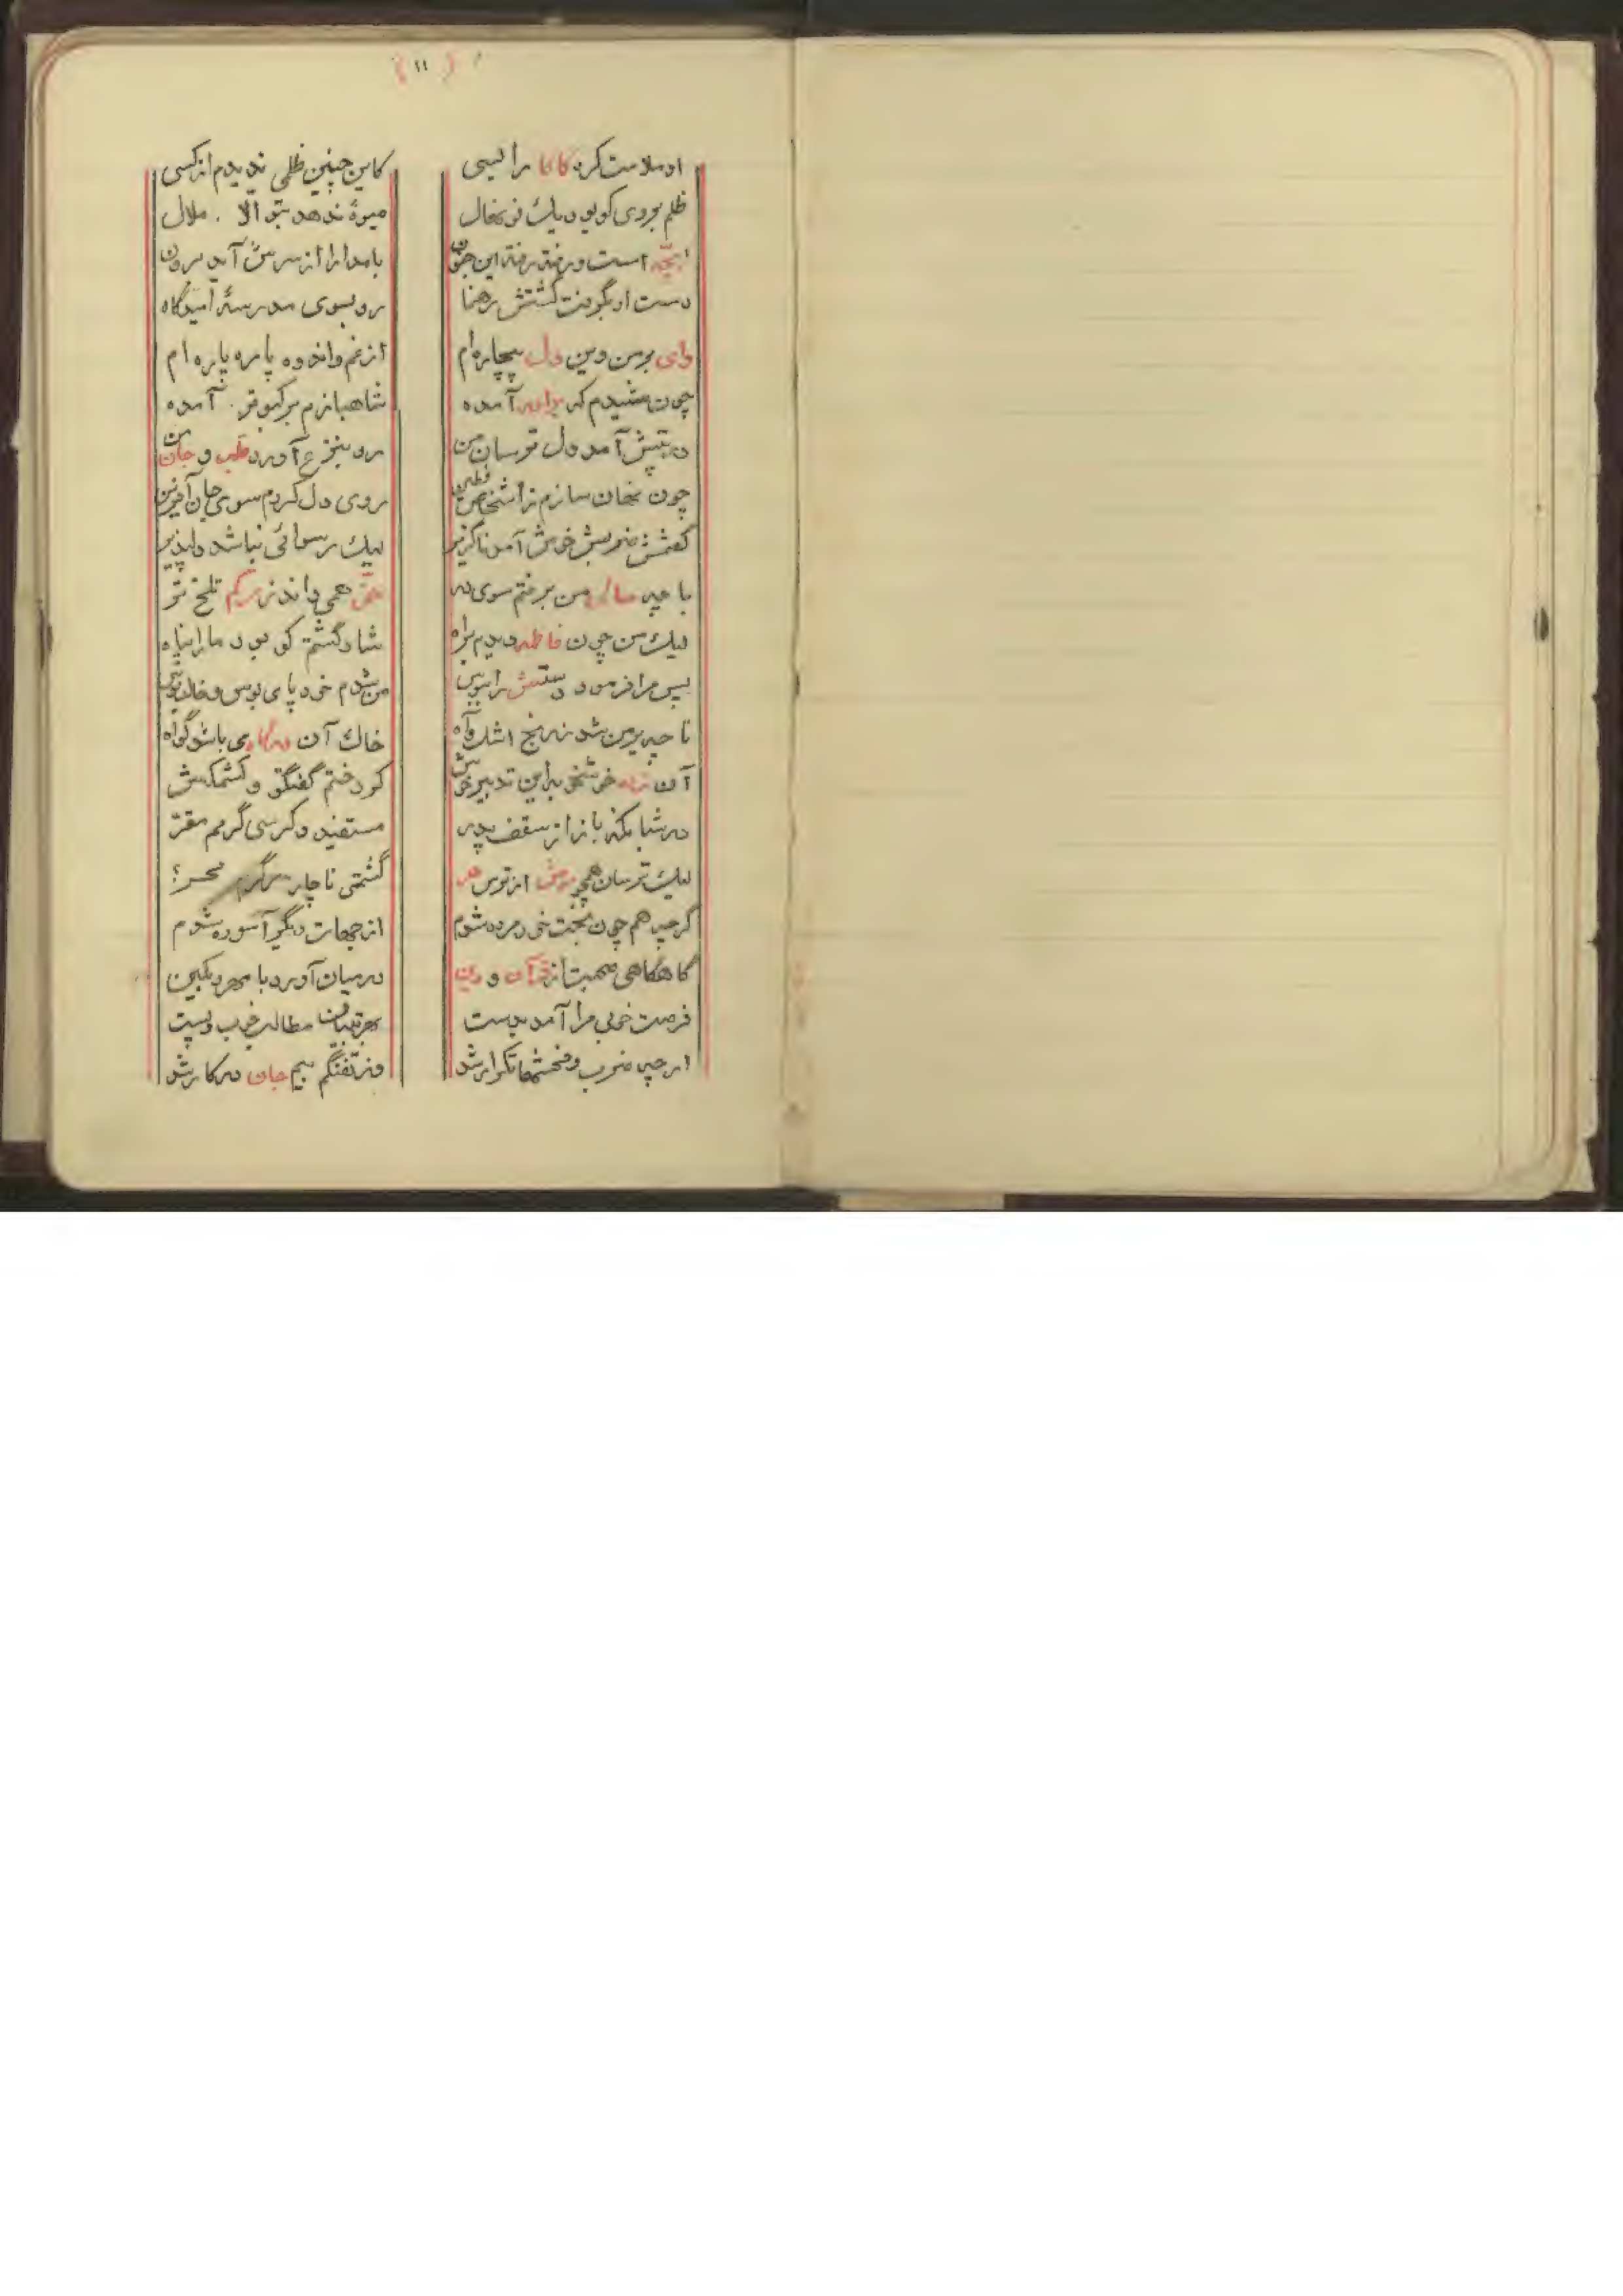 (۱۱)
او ملامت کرد کاکا را بسی
کاین چنین ظلمی ندیدم از کسی
ظلم بروی کو بود یک نونهال
میوهٔ ندهد بتو الا ملال
بچه است و رفته رفته این جنون
بامدارا از سرش آید برون
دست او بگرفت گشتش رهنما
رو بسوی مدرسهٔ امیدگاه
وای بر من وین دل بیچاره‌ام
از غم و اندوه پاره پاره ام
چون شنیدم که برادر آمده
شاهبازم بر کبوتر آمده
در تپش آمد دل ترسان من
رو بنزع آورد قلب و جان من
چون نهان سازم ز اشخاص
روی دل کردم سوی جان آفرین
گفتمش ضربش خوش آمد ناگزیر
لیک رسوائی نباشد دلپذیر
با چه من برفتم سوی در
حق همی داند ز مرگم تلخ تر
لیک من چون فاطمه دیدم براه
شاد گشتم کو بود ما را پناه
پس مرا فرمود دستش را ببوس
من شدم خود پای بوس و خاک بوس
تا چه بر من شد ز رنج اشک و آه
خاک آن درگاه می باشد گواه
آن خوشخو به این تدبیر خوش
کرد ختم گفتگو و کشمکش
در شبا نکه باز از سقف پدر
مستفید و کرسی گرمم مقر
لیک ترسان همچو موش از ترس
گشتمی ناچار سرگرم سحر؟
گرچه هم چون بخت خود مرده شوم
از جهات دیگر آسوده شوم
گاهگاهی صحبت از قرآن و دین
در میان آورد با مهر و
فرصت خوبی مرا آمد بدست
بهر تبیان مطالب خوب و پست
ار چه ضرب و فحشها تکرار شد
وز تفنگم بیم جان در کار شد